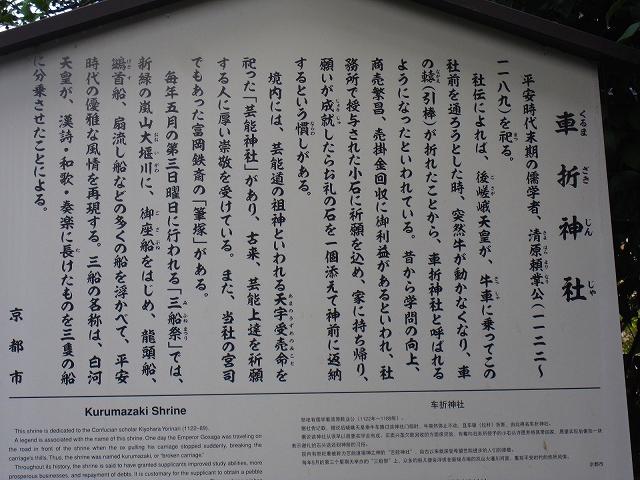 車折神社
くるまざきじんじゃ
平安時代末期の儒学者、清原頼業公(一一二二~
一一八九)を祀る。
社伝によれば、後嵯峨天皇が、牛車に乗ってこの
社前を通ろうとした時、突然牛が動かなくなり、車
の轅(引棒)が折れたことから、車折神社と呼ばれる
ようになったといわれている。昔から学問の向上、
商売繁昌、売掛金回収に御利益があるといわれ、社
務所で授与された小石に祈願を込め、家に持ち帰り、
願いが成就したらお礼の石を一個添えて神前に返納
するという慣しがある。
境内には、芸能道の祖神といわれる天宇受売命を
祀った「芸能神社」があり、古来、芸能上達を祈願
する人に厚い崇敬を受けている。また、当社の宮司
でもあった富岡鉄斎の「筆塚」がある。
毎年五月の第三日曜日に行われる「三船祭」では、
新緑の嵐山大堰川に、御座船をはじめ、龍頭船、
鷁首船、扇流し船などの多くの船を浮かべて、平安
時代の優雅な風情を再現する。三船の名称は、白河
天皇が、漢詩・和歌・奏楽に長けたものを三隻の船
に分乗させたことによる。
京都市
Kurumazaki Shrine
This shrine is dedicated to the Confucian scholar Kiyohara Yorinari (1122–89).
A legend is associated with the name of this shrine. One day the Emperor Gosaga was traveling on
the road in front of the shrine when the ox pulling his carriage stopped suddenly, breaking the
carriage's thills. Thus, the shrine was named kurumazaki, or "broken carriage."
Throughout its history, the shrine is said to have granted supplicants improved study abilities, more
prosperous businesses, and repayment of debts. It is customary for the supplicant to obtain a pebble
车折神社